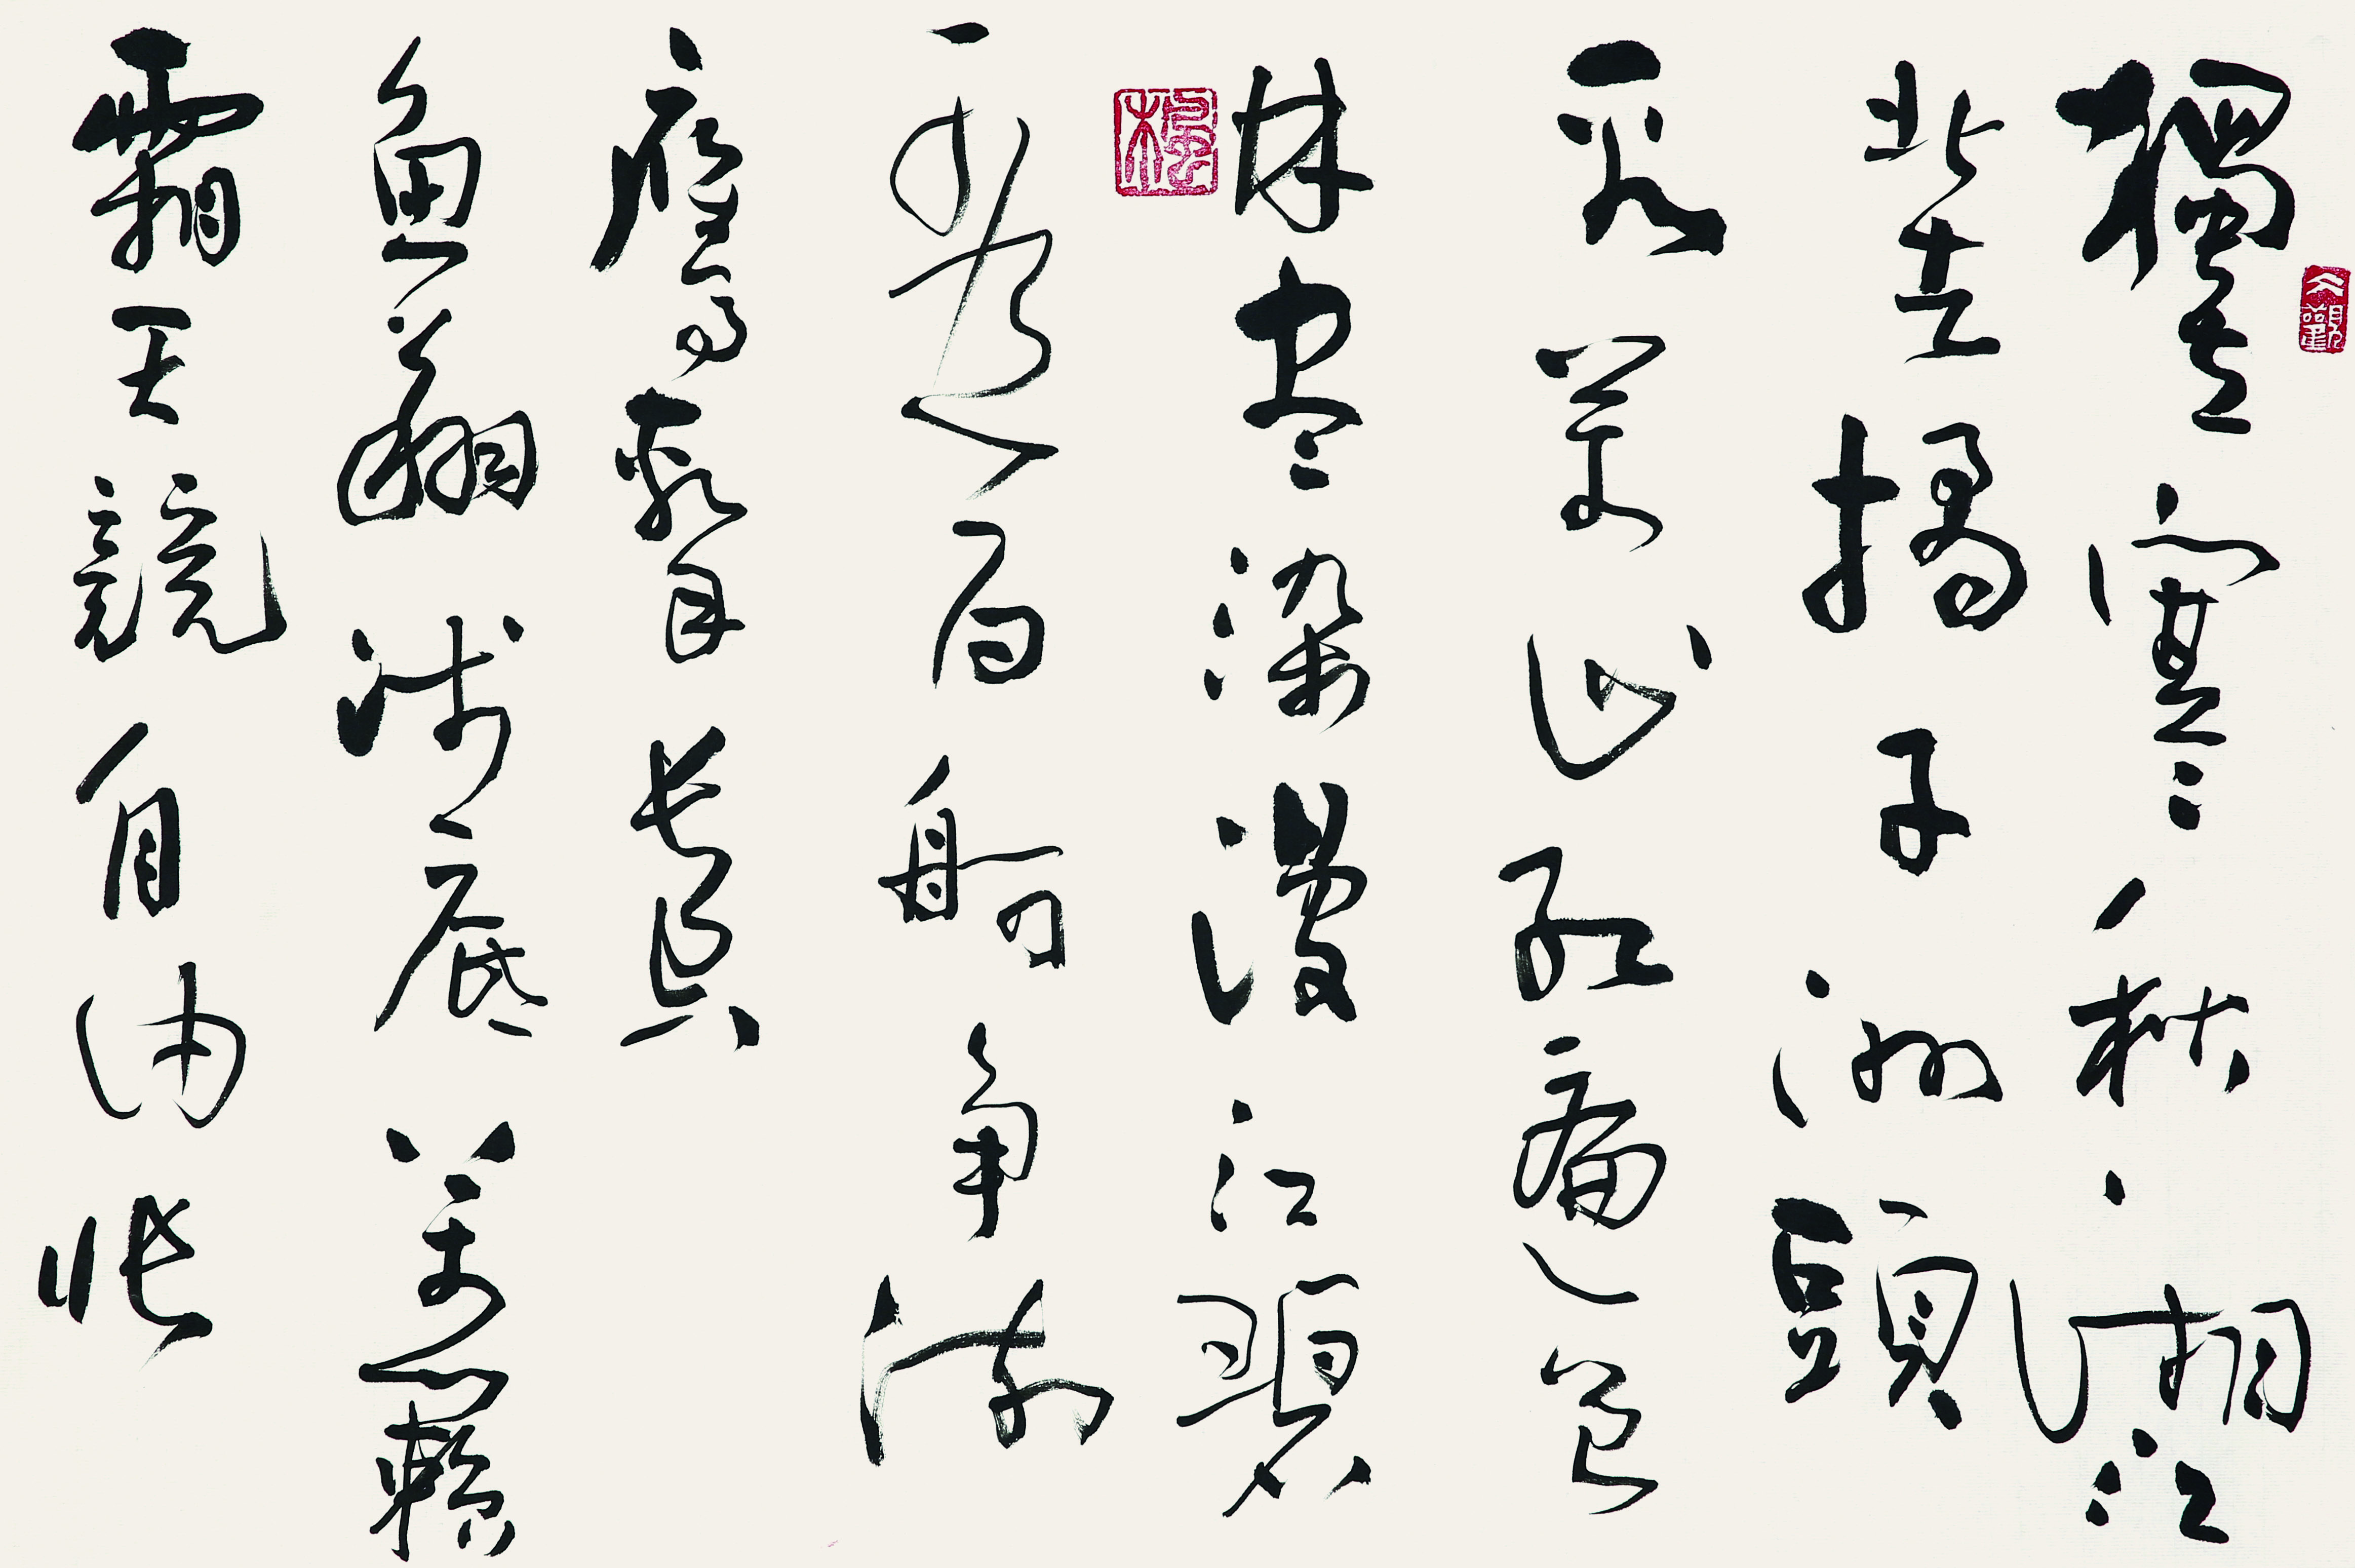 獨立寒秋湘江
北去橘子洲頭
看萬山紅遍層
林盡染漫江碧
透百舸争流
鷹擊長空
魚翔淺底萬類
霜天競自由悵